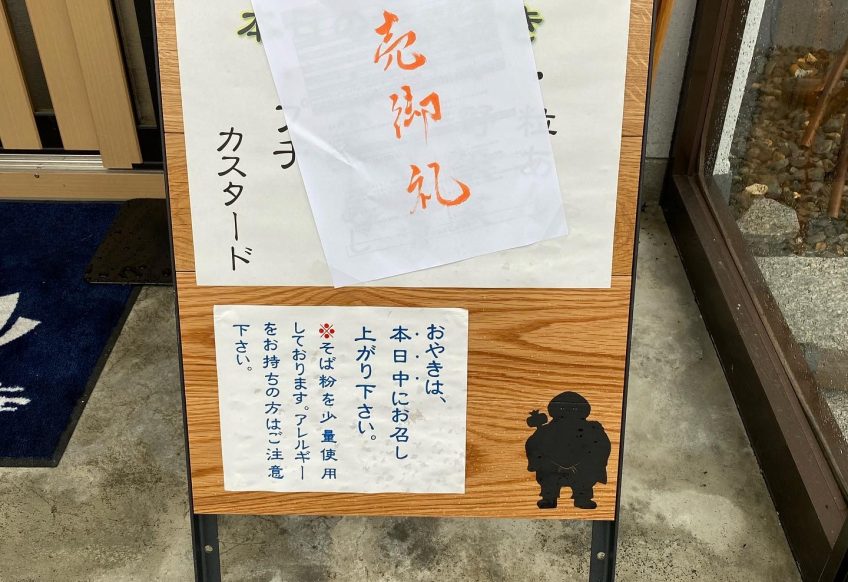 売御礼
カスタード
おやきは、
本日中にお召し
上がり下さい。
※そば粉を少量使用
しております。アレルギー
をお持ちの方はご注意
下さい。